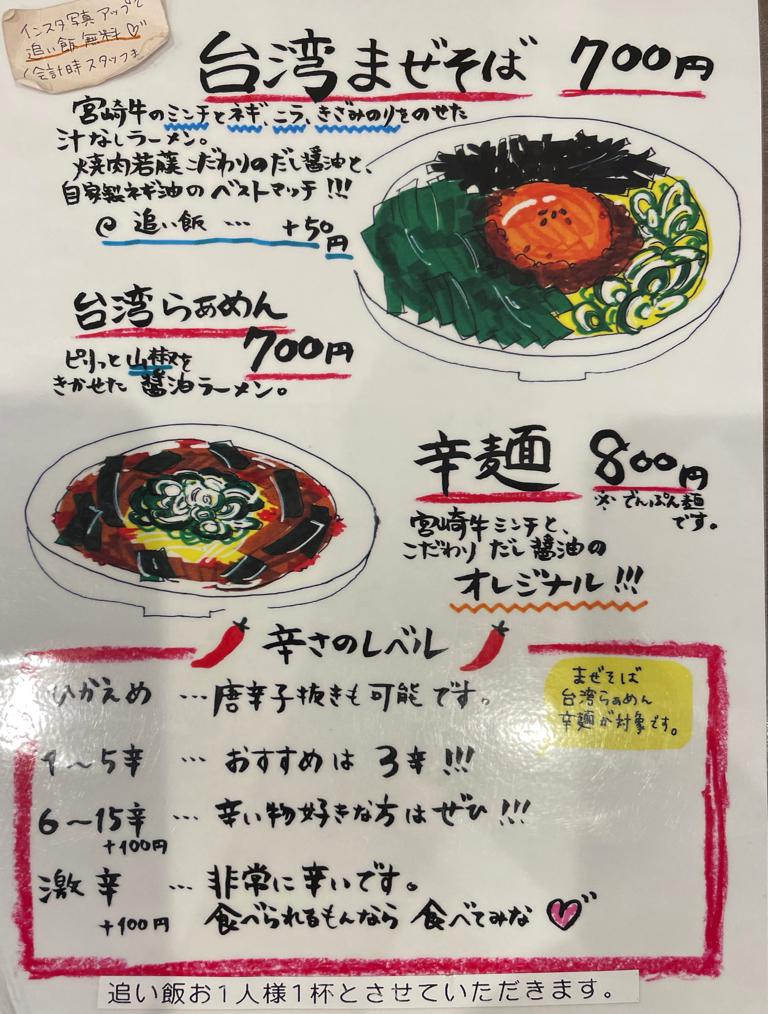 インスタ写真アップで
追い飯無料♡
台湾まぜそば 700円
宮崎牛のミンチとネギ、ニラ、きざみのりをのせた
汁なしラーメン。
焼肉若藤こだわりのだし醤油と、
自家製ネギ油のベストマッチ!!!
追い飯 … +50円
台湾らぁめん
700円
ピリッと山椒を
きかせた醤油ラーメン。
辛麺 800円
※でんぷん麺
です。
宮崎牛ミンチと、
こだわりだし醤油の
オレジナル!!!
辛さのレベル
ひかえめ …唐辛子抜きも可能です。
まぜそば
台湾らぁめん
辛麺が対象です。
1〜5辛 … おすすめは 3辛!!!
6〜15辛 … 辛い物好きな方はぜひ!!!
+100円
激辛 … 非常に辛いです。
+100円 食べられるもんなら 食べてみな♡
追い飯お1人様1杯とさせていただきます。